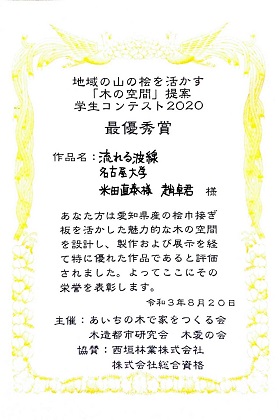 地域の山の桧を活かす
「木の空間」提案
学生コンテスト2020
最優秀賞
作品名：流れる波線
名古屋大学
米田直泰様 趙卓君 様
あなた方は愛知県産の桧巾接ぎ
板を活かした魅力的な木の空間
を設計し、製作および展示を経
て特に優れた作品であると評価
されました。よってここにその
栄誉を表彰します。
令和3年8月20日
主催：あいちの木で家をつくる会
木造都市研究会 木愛の会
協賛：西垣林業株式会社
株式会社総合資格